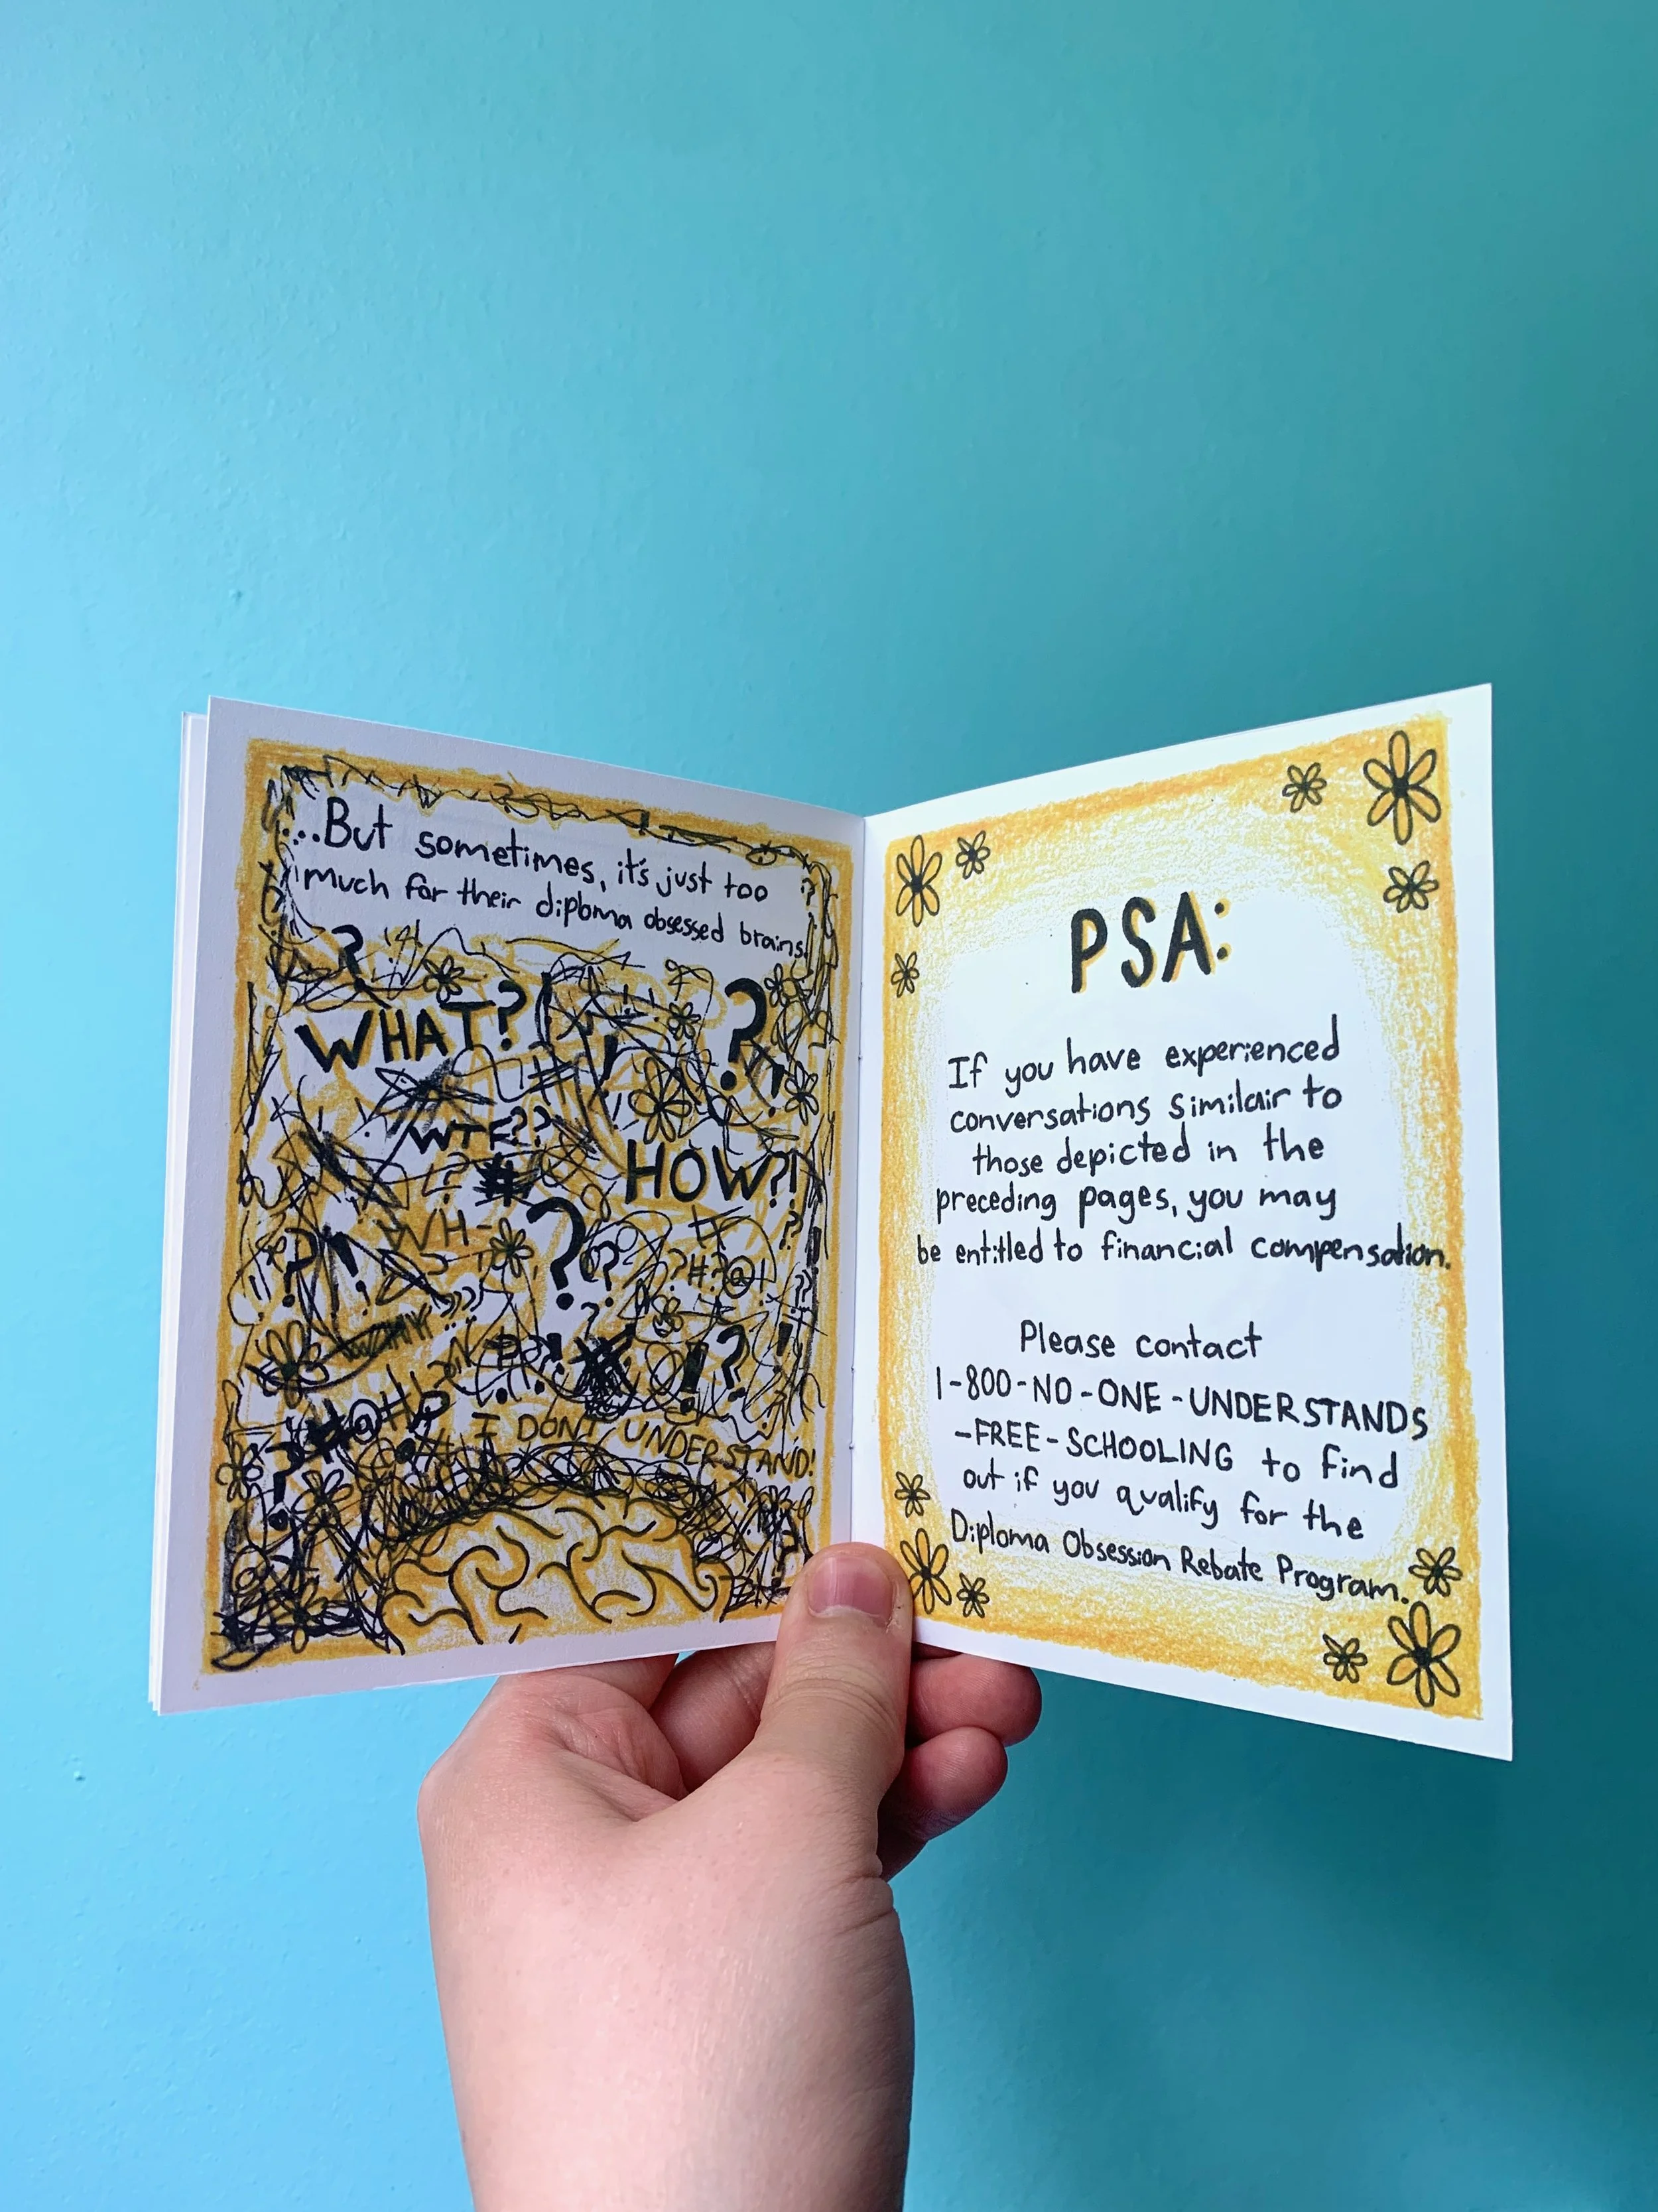 ...But sometimes, it's just too
much for their diploma obsessed brains.
?
WHAT?
?
WTF??
HOW?!
WH-
?
?#?@!
WHY???
?
#@#?
I DON'T UNDERSTAND!
PSA:
If you have experienced
conversations similair to
those depicted in the
preceding pages, you may
be entitled to financial compensation.
Please contact
1-800-NO-ONE-UNDERSTANDS
-FREE-SCHOOLING to find
out if you qualify for the
Diploma Obsession Rebate Program.